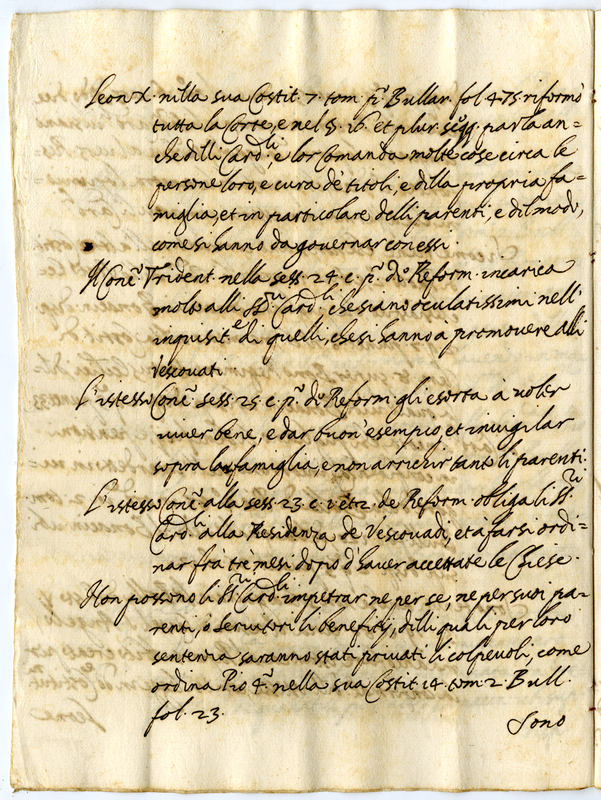 Leon X. nella sua Costit. 7. tom. p.º Bullar. fol. 475. riformò
tutta la Corte, e nel §. 16. et plur. seqq. parla an=
che delli Card.li, e lor comanda molte cose circa le
persone loro, e cura de titoli, e della propria fa=
miglia, et in particolare delli parenti, e del modo,
come si hanno da governar con essi.
Il Conc.º Trident. nella sess. 24. c. p.º de Reform. incarica
molto alli SS.ri Card.li, che siano oculatissimi nell'
inquisit.e di quelli, che si hanno a promovere alli
Vescovati.
L'istesso Conc.º sess. 25. c. p.º de Reform. gli esorta à voler
viver bene, e dar buon'esempio, et invigilar
sopra la famiglia, e non arrichir tanto li parenti.
L'istesso Conc.º alla sess. 23. c. 1. et 2. de Reform. obliga li SS.ri
Card.li alla Residenza de Vescovadi, et à farsi ordi=
nar frà trè mesi dopo d'haver accettate le Chiese.
Non possono li SS.ri Card.li impetrar ne per se, ne per suoi pa=
renti, o servitori li beneficij, delli quali per loro
sentenza saranno stati privati li colpevoli, come
ordina Pio 4.º nella sua Costit. 14. tom. 2. Bull.
fol. 23.
Sono